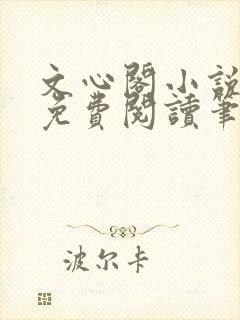 文心閣小說
免費閱讀筆
波尔卡